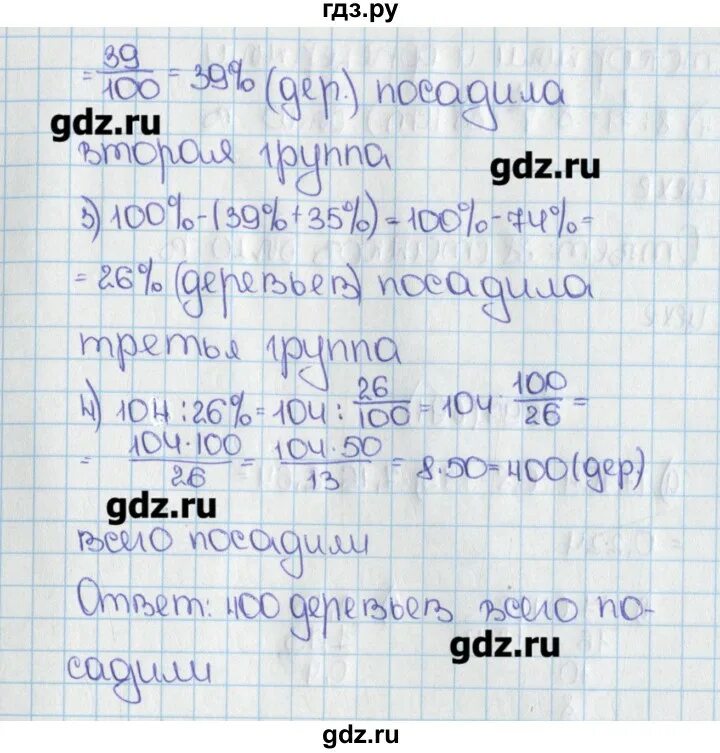 гдз.ру
= 39/100 = 39% (дер.) посадила
gdz.ru
вторая группа
gdz.ru
3) 100% - (39% + 35%) = 100% - 74% =
= 26% (деревьев) посадила
третья группа
4) 104 : 26% = 104 : 26/100 = 104 · 100/26 =
= 104·100/26 = 104·50/13 = 8·50 = 400 (дер)
gdz.ru
всего посадили
Ответ: 400 деревьев всего по-
gdz.ru
садили
gdz.ru